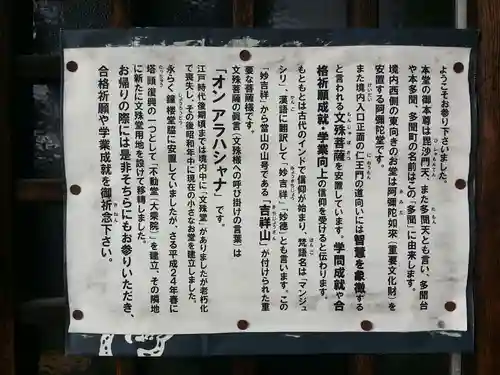 ようこそお参り下さいました。
本堂の御本尊は毘沙門天、また多聞天とも言い、多聞台
や本多聞、多聞町の名前はこの「多聞」に由来します。
境内西側の東向きのお堂は阿弥陀如来（重要文化財）を
安置する阿弥陀堂です。
また境内入口正面の仁王門の道向いには智慧を象徴する
と言われる文殊菩薩を安置しています。学問成就や合
格祈願成就・学業向上の信仰を受けると伝わります。
もともとは古代のインドで信仰が始まり、梵語名は「マンジュ
シリ」、漢語に翻訳して「妙吉祥」「妙徳」とも言います。この
「妙吉祥」から当山の山号である「吉祥山」が付けられた重
要な菩薩様です。
文殊菩薩の眞言（文殊様への呼び掛けの言葉）は
「オン アラハシャナ」です。
江戸時代後期頃までは境内中に「文殊堂」がありましたが老朽化
で喪失し、その後昭和年中に現在の小さなお堂を建立しました。
永らく鐘楼堂脇に安置していましたが、さる平成24年春に
塔頭復興の一つとして「不動堂（大衆院）」を建立、その隣地
に新たに文殊堂用地を設けて移轉しました。
お帰りの際には是非そちらにもお参りいただき、
合格祈願や学業成就を御祈念下さい。